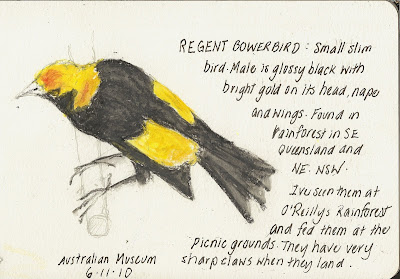 REGENT BOWERBIRD : Small slim
bird. Male is glossy black with
bright gold on its head, nape
and wings. Found in
rainforest in SE
Queensland and
NE. NSW.
I've seen them at
O'Reillys Rainforest
and fed them at the
picnic grounds. They have very
sharp claws when they land.
Australian Museum
6.11.10